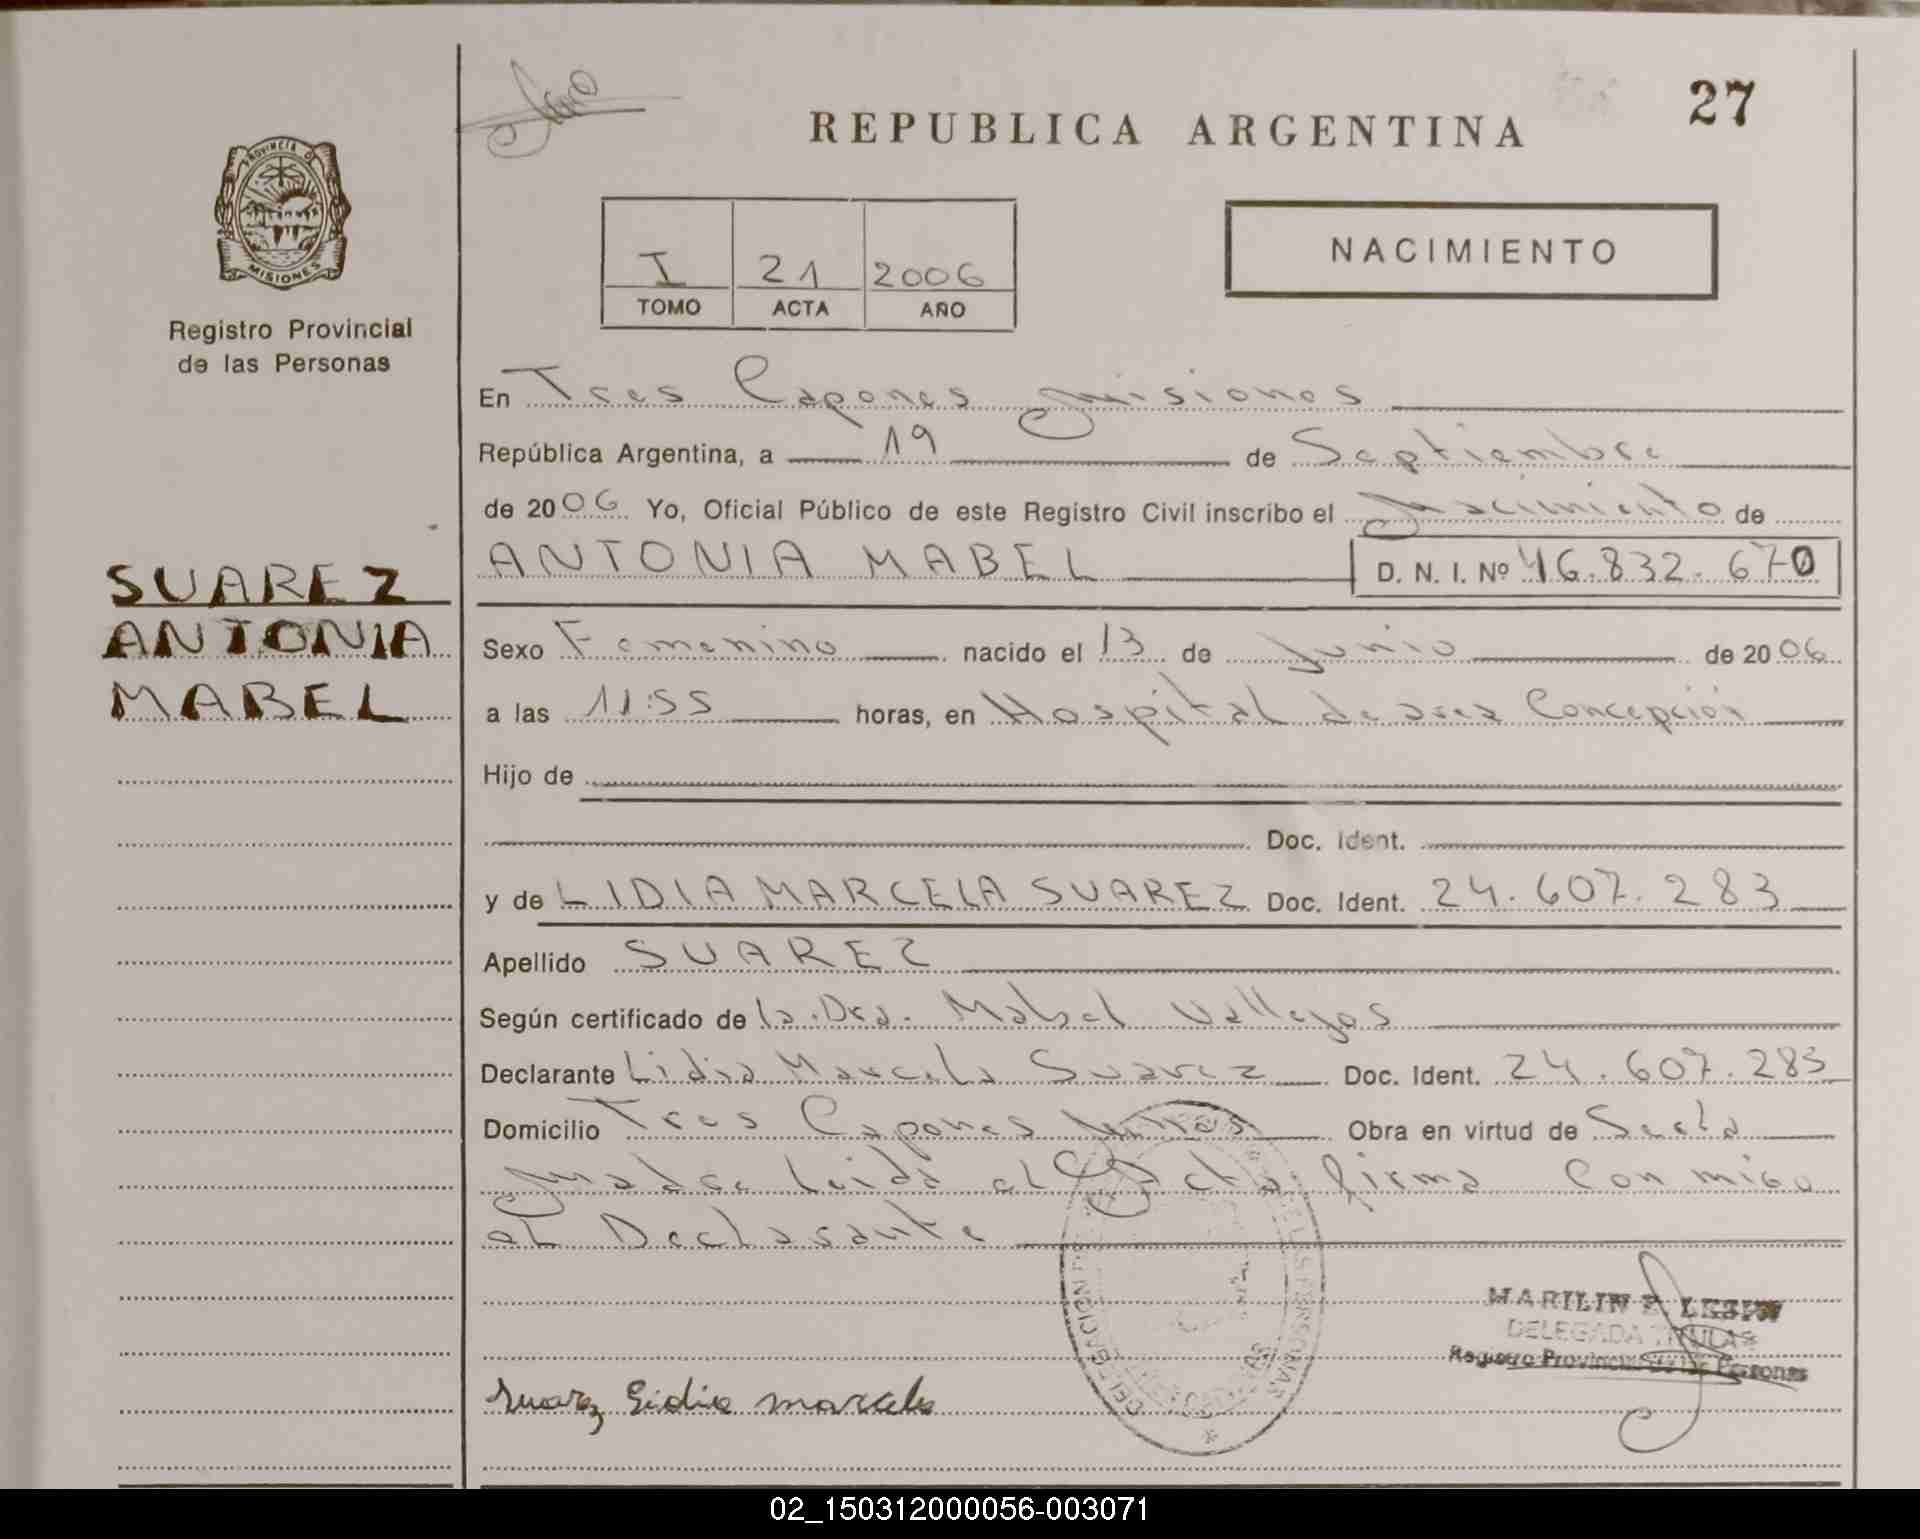 27
REPUBLICA ARGENTINA
PROVINCIA DE
MISIONES
Registro Provincial
de las Personas
NACIMIENTO
I 21 2006
TOMO ACTA AÑO
En Tres Capones Misiones
República Argentina, a 19 de Septiembre
de 2006 Yo, Oficial Público de este Registro Civil inscribo el Nacimiento de
ANTONIA MABEL D. N. I. Nº 46.832.670
SUAREZ
ANTONIA
MABEL
Sexo Femenino nacido el 13 de Junio de 2006
a las 11:55 horas, en Hospital de area Concepción
Hijo de
Doc. Ident.
y de LIDIA MARCELA SUAREZ Doc. Ident. 24.607.283
Apellido SUAREZ
Según certificado de la Dra. Mabel Vallejos
Declarante Lidia Marcela Suarez Doc. Ident. 24.607.283
Domicilio Tres Capones Mnes Obra en virtud de Ser la
Madre Leida el Acta firma Conmigo
el Declarante
MARILIN E.
DELEGADA TITULAR
Registro Provincial de las Personas
Suarez Lidia marcela
02_150312000056-003071